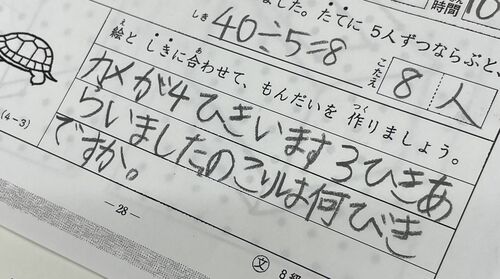 ました。たてに 5人ずつならぶと
時間 10
しき 40÷5=8
こたえ 8人
絵と しきに合わせて、もんだいを 作りましょう。
え あ つく
カメが4ひきいます3びきあ
らいましたのこりは何びき
ですか。
(4-3)
- 28 -
文 8級